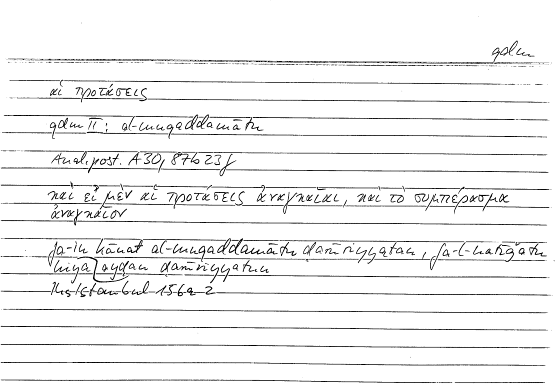 qdm
αἱ προτάσεις
qdm II: al-muqaddamātu
Anal. post. A 30, 87b 23f
καὶ εἰ μὲν αἱ προτάσεις ἀναγκαῖαι, καὶ τὸ συμπέρασμα
ἀναγκαῖον
fa-in kānat al-muqaddamātu ḍarūriyyatan, fa-l-natīǧatu
hiya ayḍan ḍarūriyyatun
Hs Istanbul 156a 2